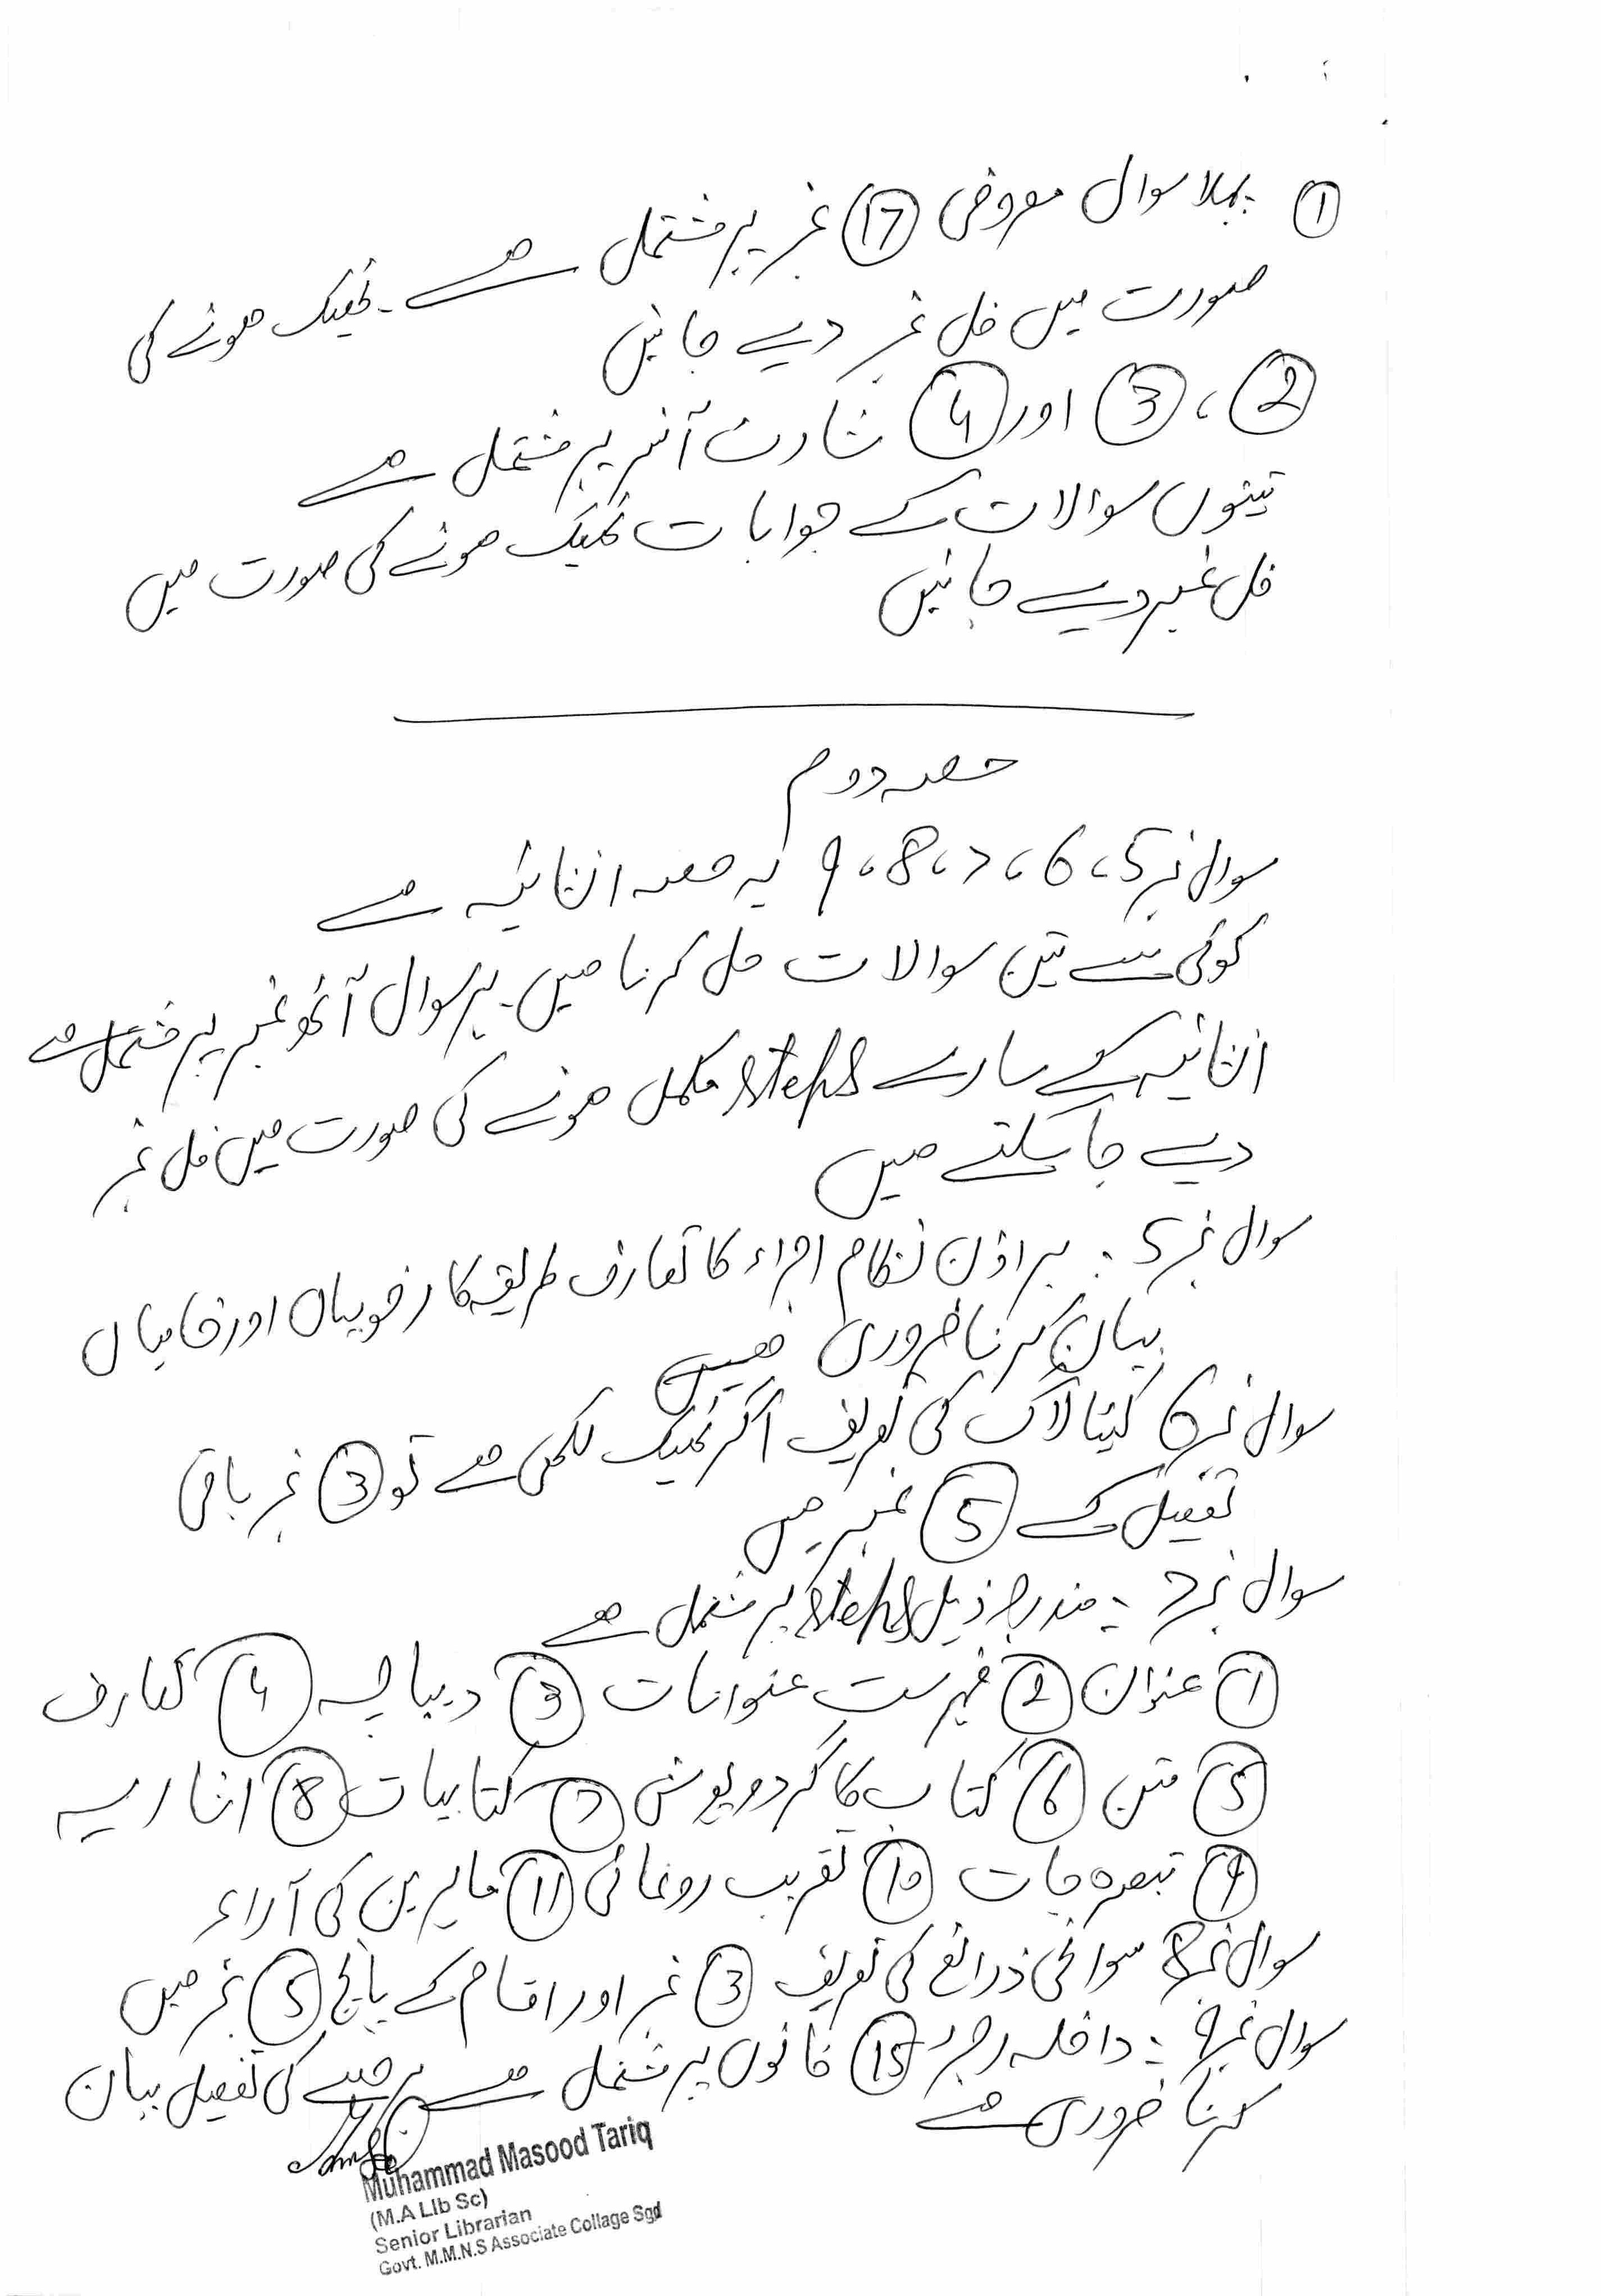 ① پہلا سوال معروضی ⑰ نمبر پر مشتمل ہے۔ ٹھیک ہونے کی
صورت میں فل نمبر دیے جائیں
②، ③ اور ④ شارٹ آنسر پر مشتمل ہے
تینوں سوالات کے جوابات ٹھیک ہونے کی صورت میں
فل نمبر دیے جائیں
حصہ دوم
سوال نمبر 5، 6، 7، 8، 9 یہ حصہ انشائیہ ہے
کوئی سے تین سوالات حل کرنا ہیں۔ ہر سوال آٹھ نمبر پر مشتمل ہے
انشائیہ کے سارے steps مکمل ہونے کی صورت میں فل نمبر
دیے جا سکتے ہیں
سوال نمبر 5: براؤن نظام اجراء کا تعارف طریقہ کار خوبیاں اور خامیاں
بیان کرنا ضروری ہیں
سوال نمبر 6 کیٹالاگ کی تعریف اگر ٹھیک لکھی ہے تو ③ نمبر باقی
تفصیل کے ⑤ نمبر ہیں
سوال نمبر 7: مندرجہ ذیل steps پر مشتمل ہے
① عنوان ② فہرست عنوانات ③ دیباچہ ④ تعارف
⑤ متن ⑥ کتاب کا گردوپوش ⑦ کتابیات ⑧ اشاریہ
⑨ تبصرہ جات ⑩ تقریب رونمائی ⑪ ماہرین کی آراء
سوال نمبر 8 سوانحی ذرائع کی تعریف ③ نمبر اور اقسام کے پانچ ⑤ نمبر ہیں
سوال نمبر 9: داخلہ رجسٹر ⑮ خانوں پر مشتمل ہے ہر حصے کی تفصیل بیان
کرنا ضروری ہے
Muhammad Masood Tariq
(M.A LIb Sc)
Senior Librarian
Govt. M.M.N.S Associate Collage Sgd